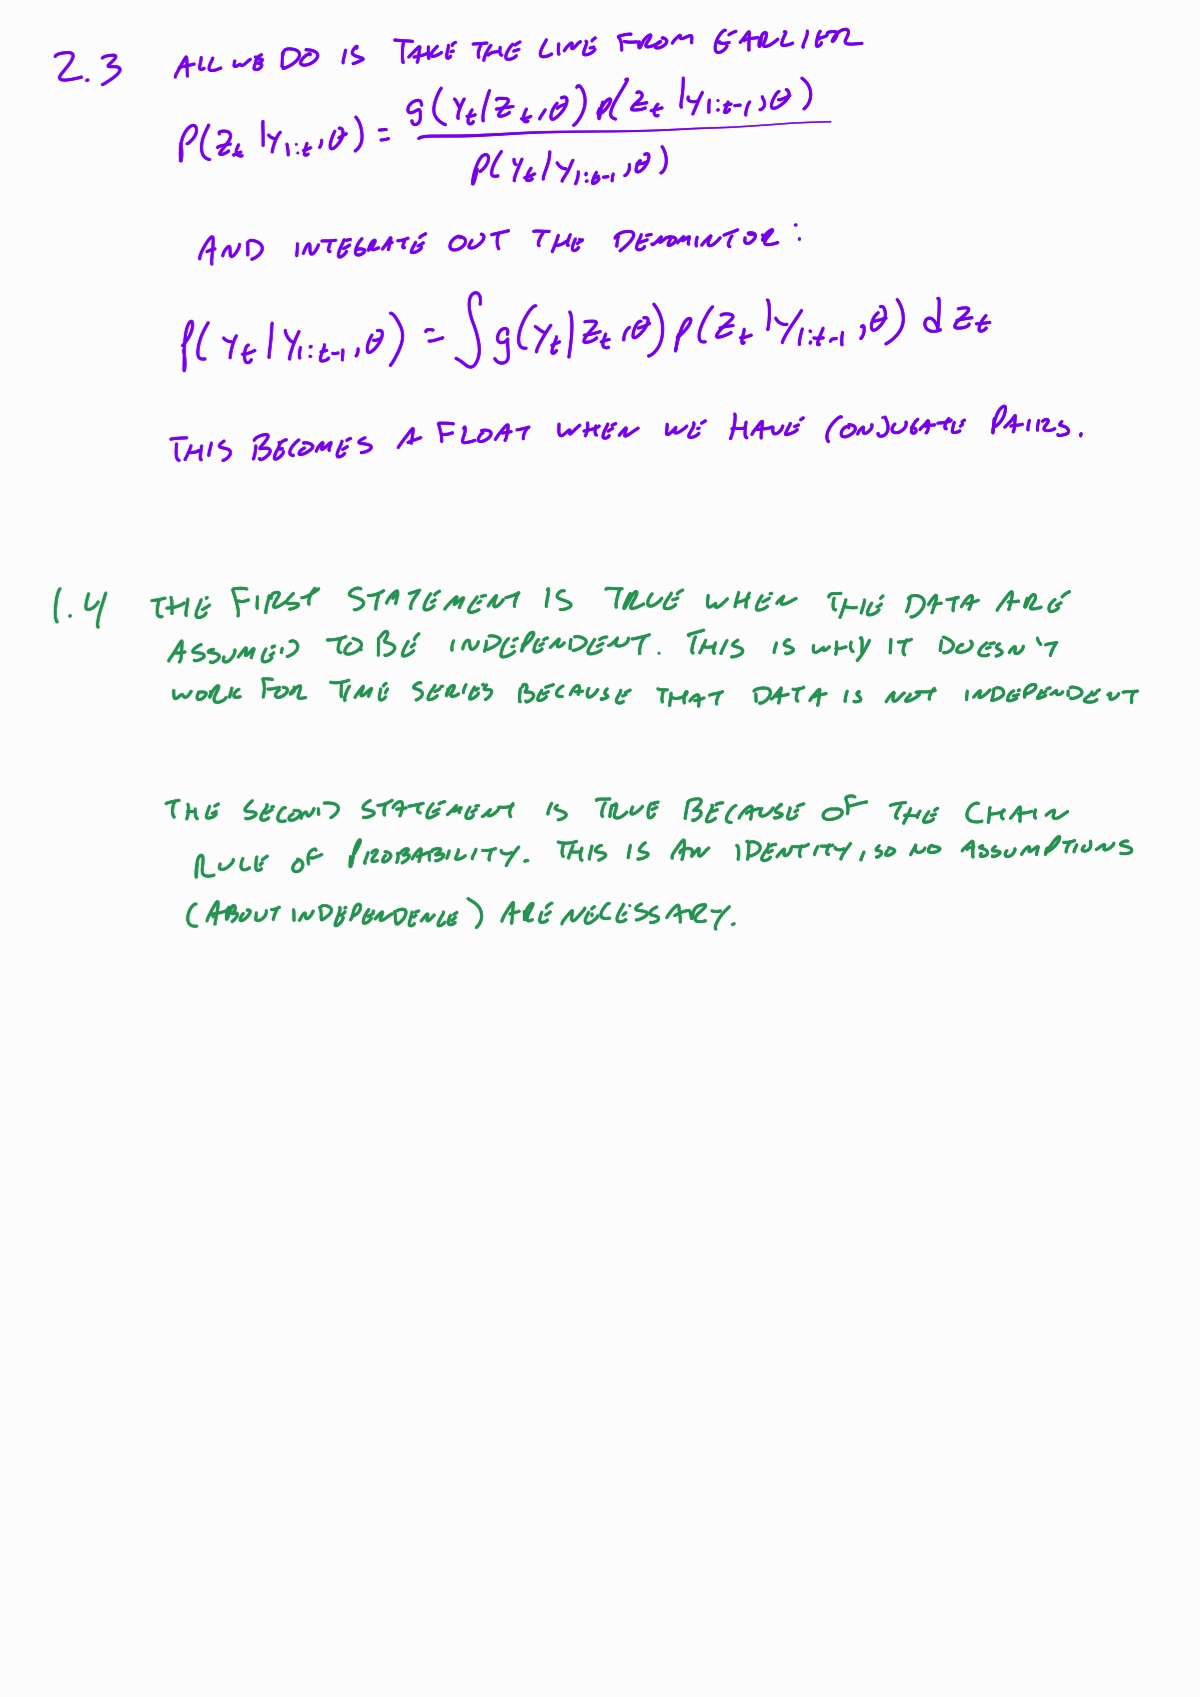 2.3 ALL WE DO IS TAKE THE LINE FROM EARLIER
p(z_t | y_{1:t}, θ) = g(y_t | z_t, θ) p(z_t | y_{1:t-1}, θ) / p(y_t | y_{1:t-1}, θ)
AND INTEGRATE OUT THE DENOMINTOR:
p(y_t | y_{1:t-1}, θ) = ∫ g(y_t | z_t, θ) p(z_t | y_{1:t-1}, θ) d z_t
THIS BECOMES A FLOAT WHEN WE HAVE CONJUGATE PAIRS.
1.4 THE FIRST STATEMENT IS TRUE WHEN THE DATA ARE
ASSUMED TO BE INDEPENDENT. THIS IS WHY IT DOESN'T
WORK FOR TIME SERIES BECAUSE THAT DATA IS NOT INDEPENDENT
THE SECOND STATEMENT IS TRUE BECAUSE OF THE CHAIN
RULE OF PROBABILITY. THIS IS AN IDENTITY, SO NO ASSUMPTIONS
(ABOUT INDEPENDENCE) ARE NECESSARY.